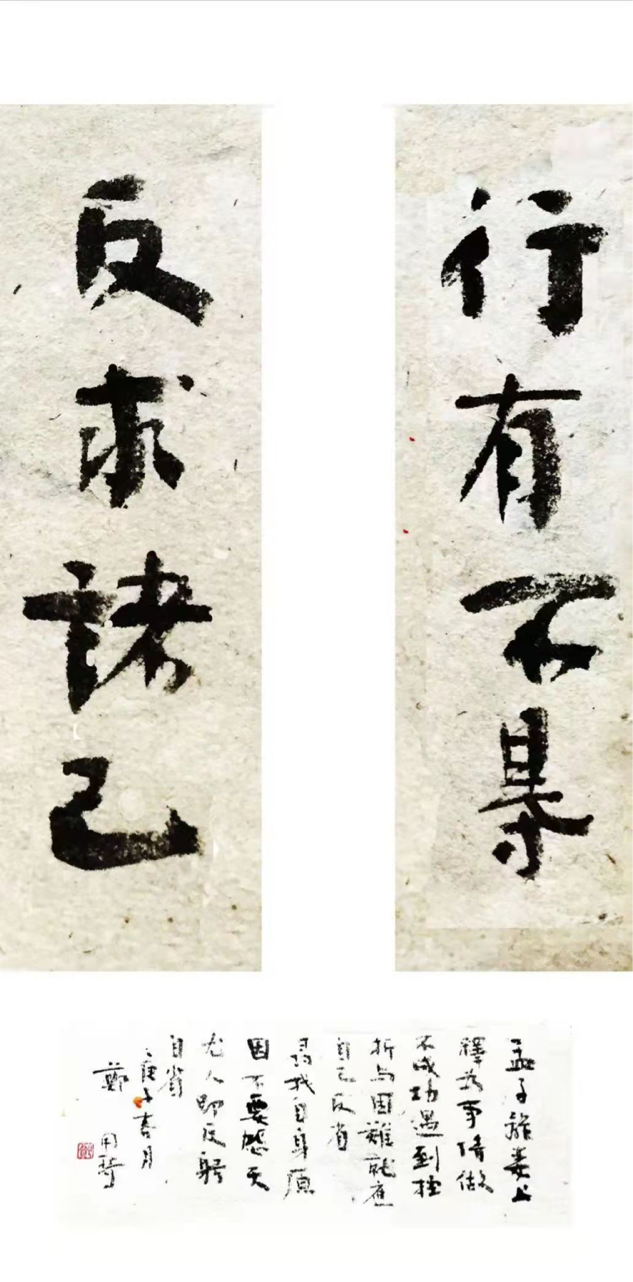 行有不㝵
反求諸己
孟子離婁上
釋為事情做
不成功遇到挫
折与困難就應
自己反省
尋找自身原
因不要怨天
尤人即反躬
自省
庚子春月
鄭用